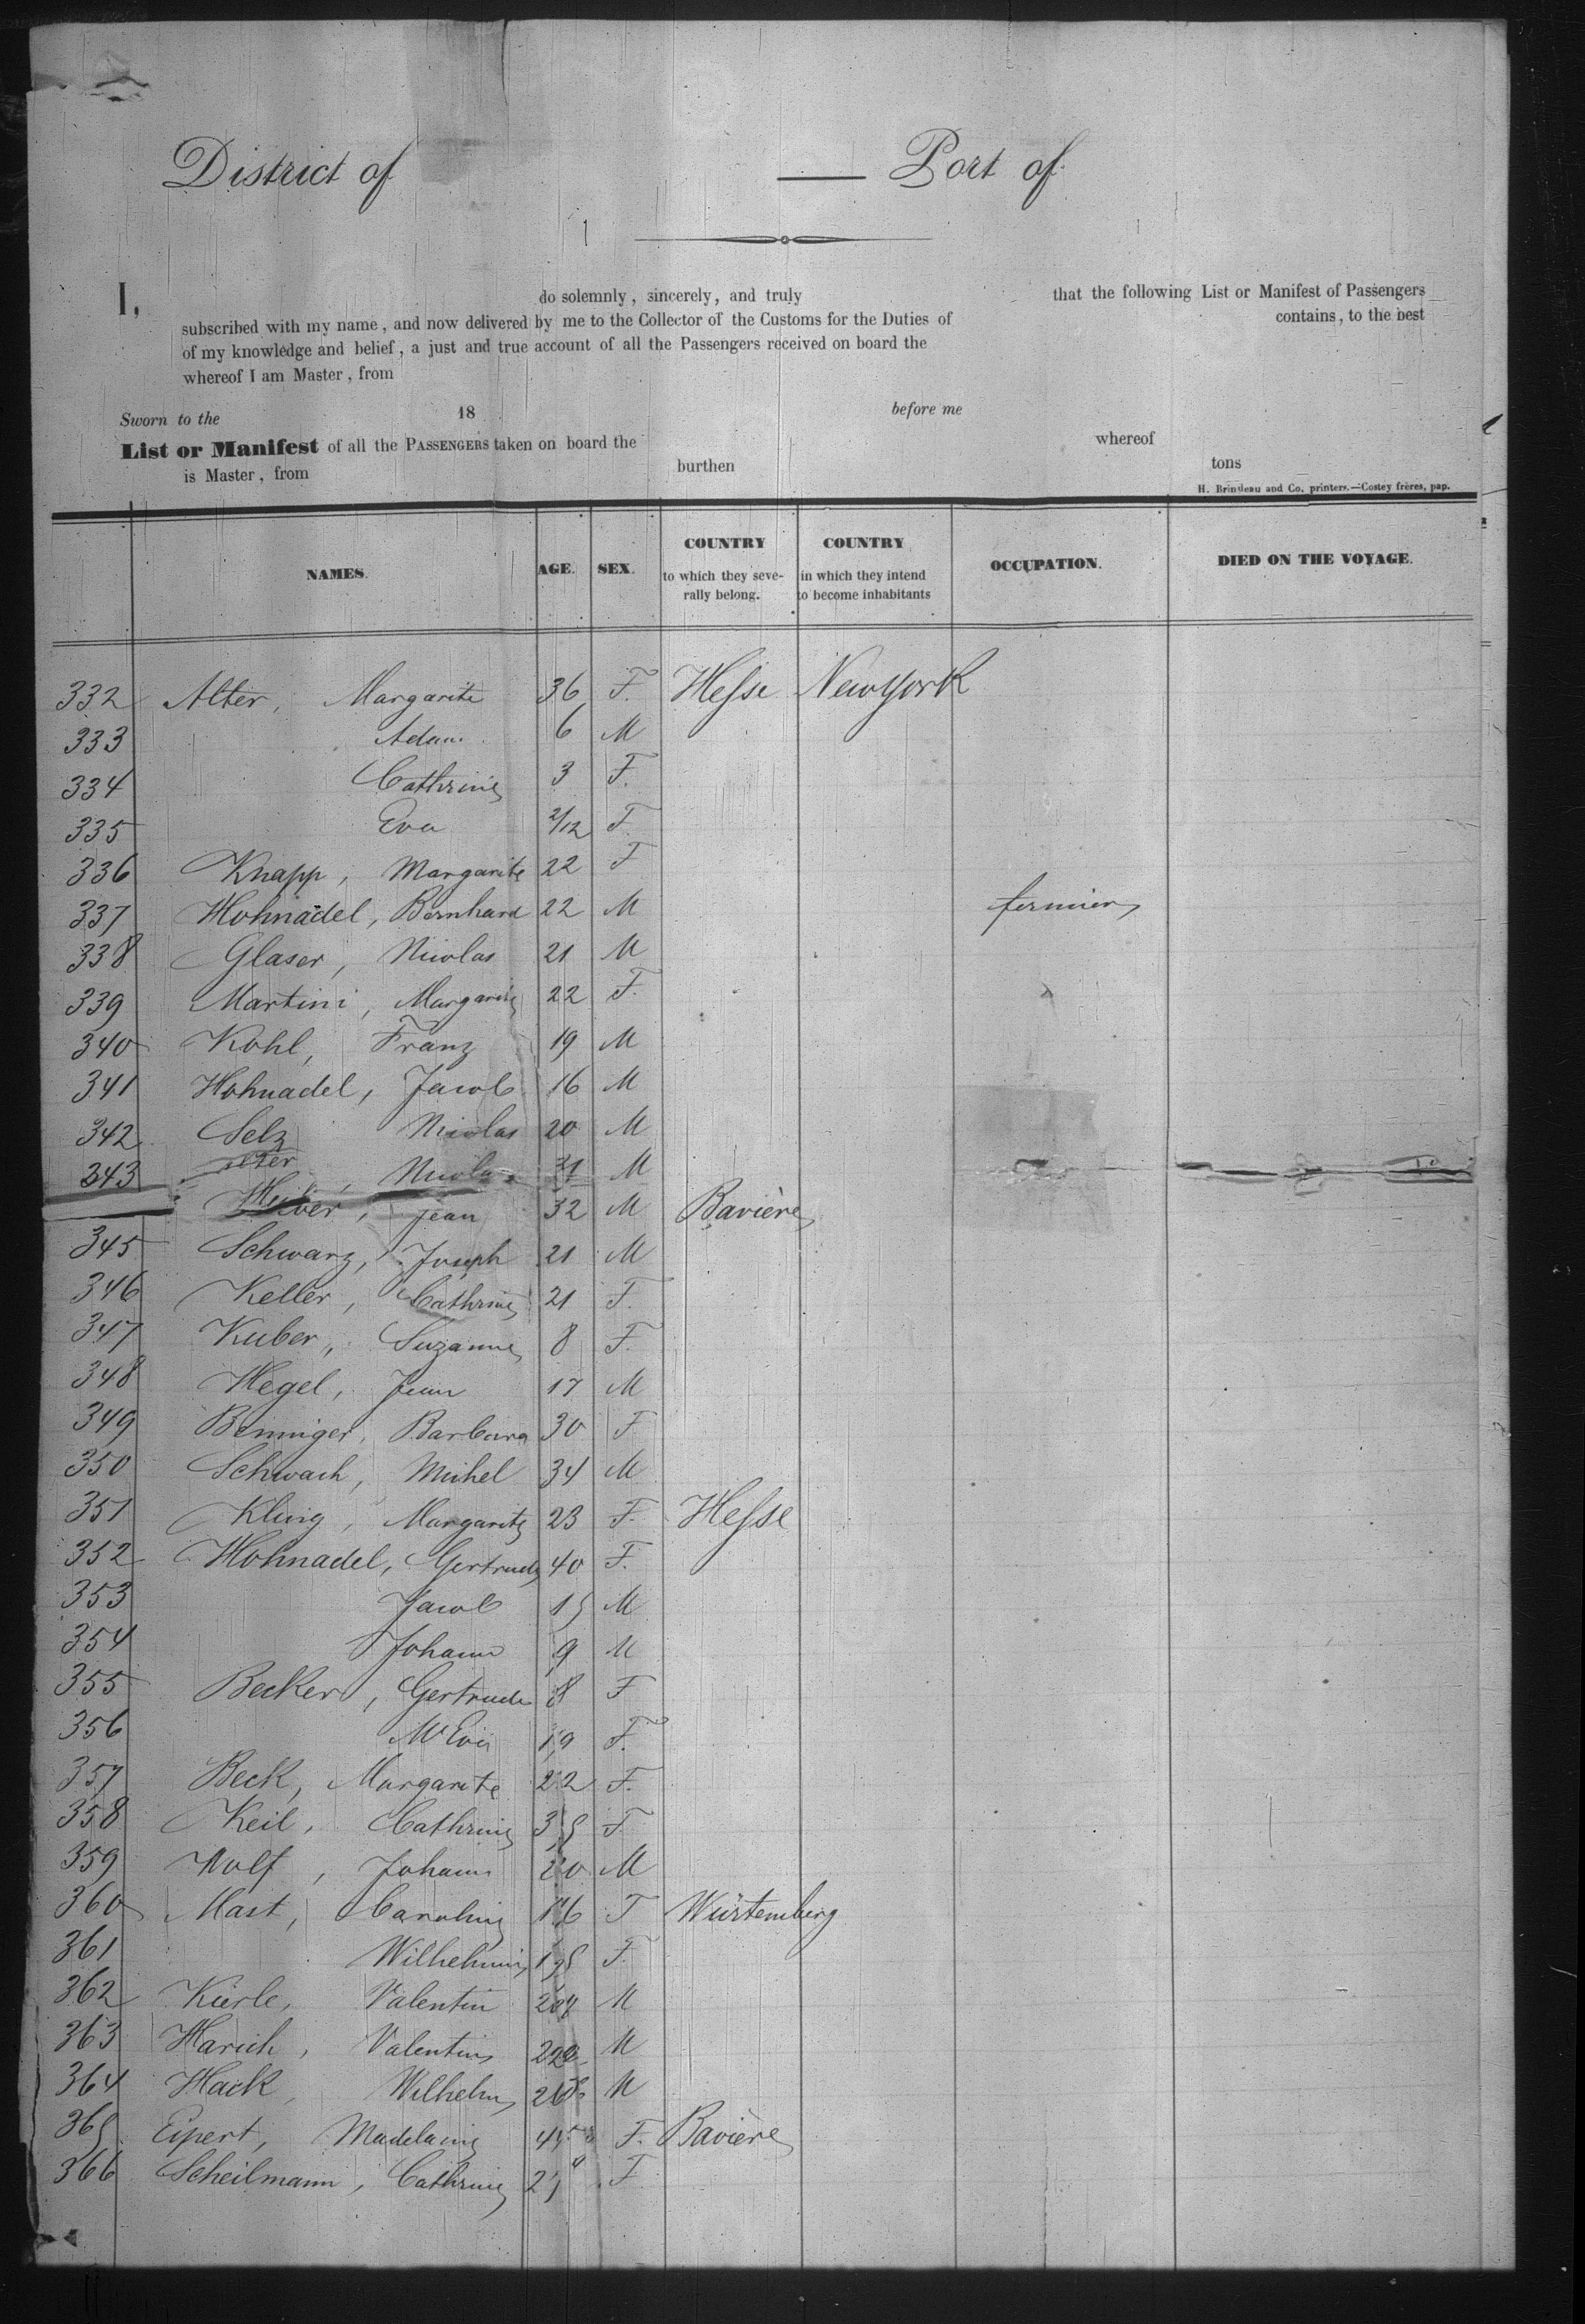 District of — Port of
I, do solemnly, sincerely, and truly that the following List or Manifest of Passengers
subscribed with my name, and now delivered by me to the Collector of the Customs for the Duties of contains, to the best
of my knowledge and belief, a just and true account of all the Passengers received on board the
whereof I am Master, from
Sworn to the 18 before me
List or Manifest of all the PASSENGERS taken on board the whereof
is Master, from burthen tons
H. Brindeau and Co, printers.—Costey frères, pap.
NAMES. AGE. SEX. COUNTRY to which they seve- rally belong. COUNTRY in which they intend to become inhabitants OCCUPATION. DIED ON THE VOYAGE.
332 Alter, Margarite 36 F. Hesse New York
333 Adam 6 M
334 Cathrine 3 F.
335 Eva 2/12 F.
336 Knapp, Margarite 22 F
337 Hohnadel, Bernhard 22 M fermier
338 Glaser, Nicolas 21 M
339 Martini, Margarite 22 F.
340 Kohl, Franz 19 M
341 Hohnadel, Jacob 16 M
342 Selz Nicolas 20 M
343 Nicolas M
Jean 32 M Bavière
345 Schwarz, Joseph 21 M
346 Keller, Cathrine 21 F.
347 Kuber, Suzanne 8 F.
348 Hegel, Jean 17 M
349 Benninger, Barbara 30 F
350 Schwach, Michel 34 M
351 Kling, Margarite 23 F. Hesse
352 Hohnadel, Gertrude 40 F.
353 Jacob 15 M
354 Johann 9 M
355 Becker, Gertrude 8 F
356 Eva 19 F.
357 Beck, Margarete 22 F.
358 Keil, Cathrine 35 F
359 Wolf, Johann 20 M
360 Mast, Caroline 16 F Würtemberg
361 Wilhelmine F.
362 Valentin M
363 Harich, Valentin M
364 Hack, Wilhelm M
365 Eipert, Madelaine F. Bavière
366 Scheilmann, Cathrine F